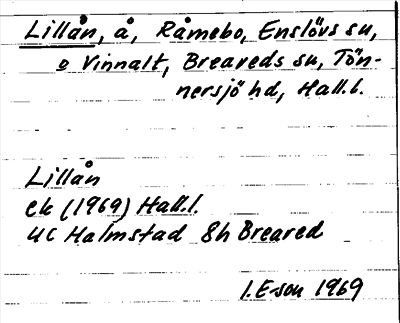 Lillån, å, Råmebo, Enslövs sn,
o Vinnalt, Breareds sn, Tön-
nersjö hd, Hall.l.
Lillån
ek (1969) Hall.l.
4C Halmstad 8h Breared
I.E-son 1969